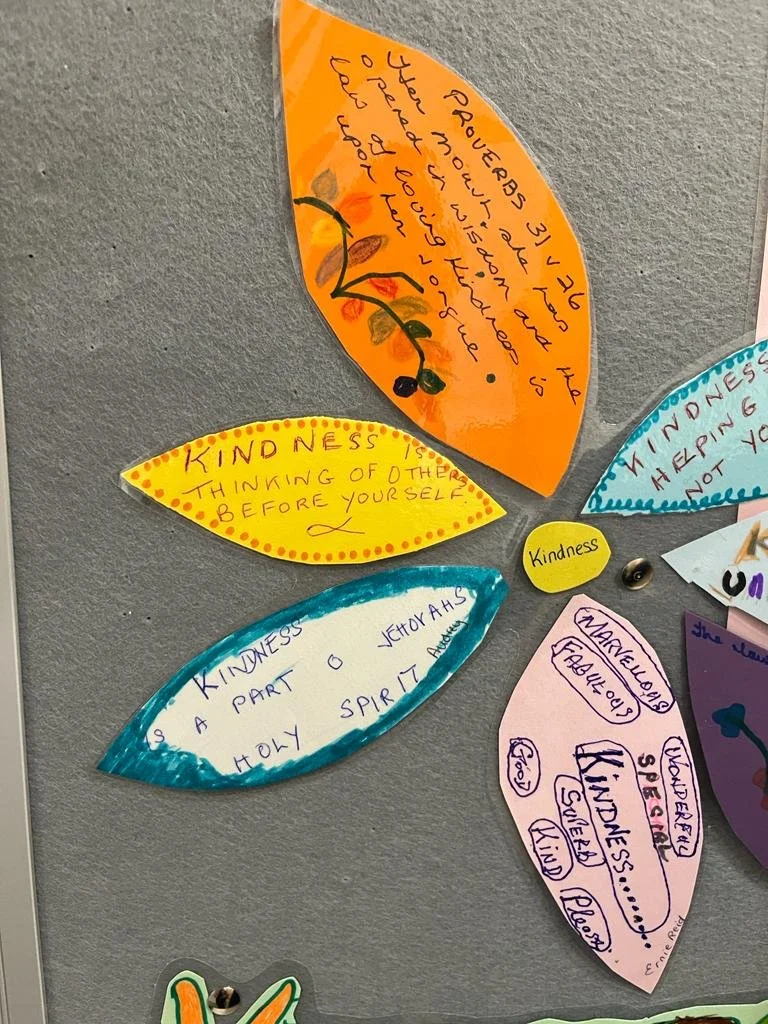 PROVERBS 31 v 26
Her mouth she has
opened in wisdom and the
law of loving kindness is
upon her tongue.
KINDNESS IS
THINKING OF OTHERS
BEFORE YOURSELF
KINDNESS
HELPING
NOT YO
Kindness
KINDNESS
IS A PART O JEHOVAHS
HOLY SPIRIT
Audrey
MARVELLOUS
FABULOUS
WONDERFUL
SPECIAL
KINDNESS........
SUPERB
GOOD
KIND
Please
Ernie Reid
K
UN
the law